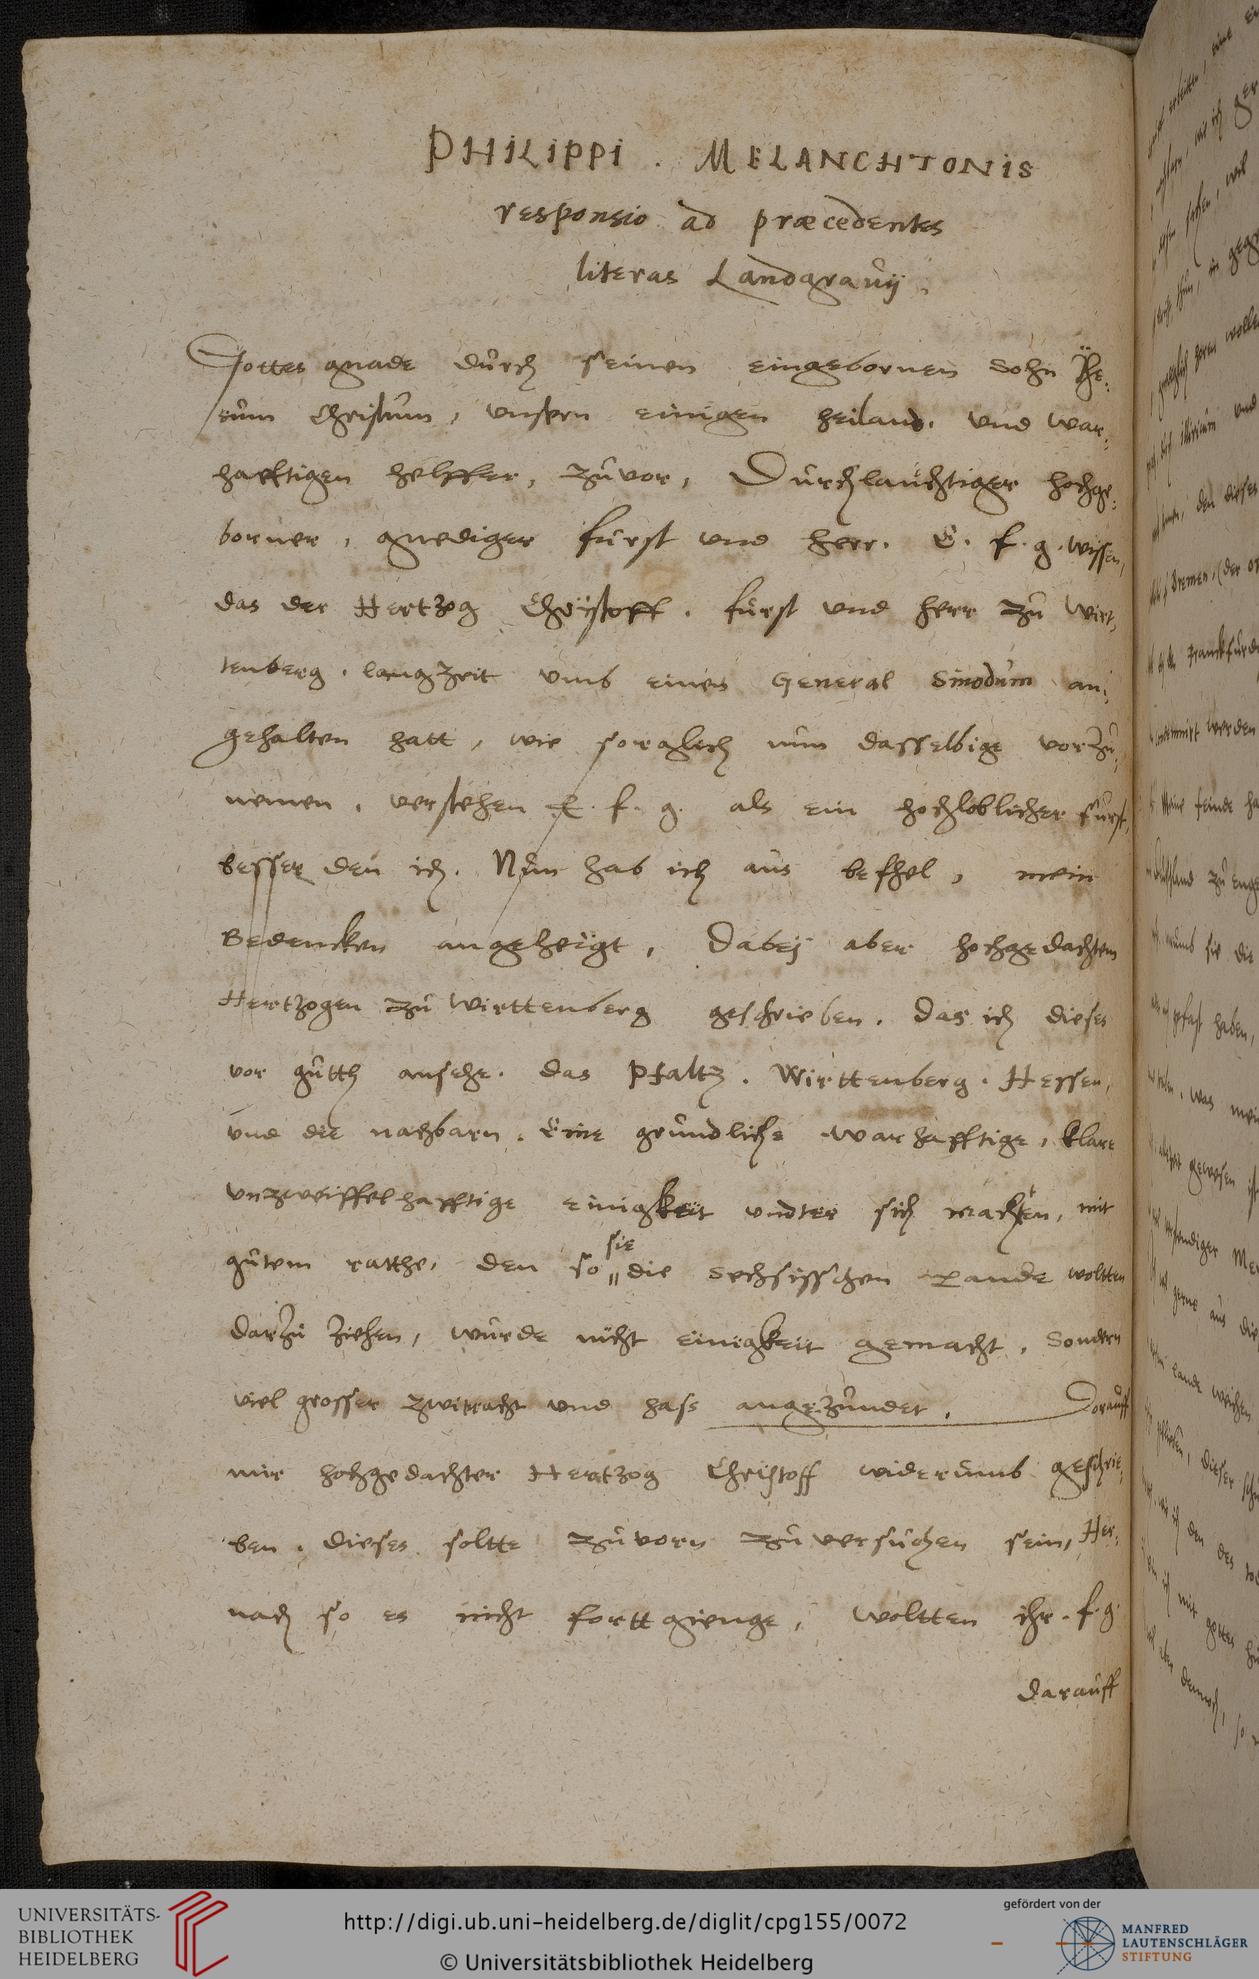 PHILIPPI . MELANCHTONIS
responsio ad præcedentes
literas Landgravij .
Gottes gnade durch seinen eingebornen Sohn Jhe:
sum Christum, vnsern einigen heiland. vnd war:
hafftigen helffer, zuvor, Durchlauchtiger hochge:
borner, gnediger fürst vnd herr. E. f. g. wissen,
das der Hertzog Christoff. fürst vnd herr zu Wirt,
tenberg. langzeit vmb einen General Sinodum an:
gehalten hatt, wie sorglich nun dasselbige vorzu:
nemen, verstehen E. f. g. als ein hochloblicher furst,
besser den ich. Nun hab ich aus befhel, mein
Bedencken angeheigt, Dabej aber hochgedachtem
Hertzogen zu Wirttenberg geschrieben. das ich dieses
vor gutth ansehe. das Pfaltz. Wirttenberg. Hessen,
vnd die nachbarn. Eine grundliche warhafftige, klare
vnzweiffelhafftige einigkeit vndter sich machten, mit
gutem ratthe, den so sie die Sechsisschen Lande woltten
darzu ziehen, wurde nicht einigkeit gemacht, sondern
viel grosser zwitracht vnd hass angezundet. Dorauff
mir hochgedachter Hertzog Christoff widerumb geschrie:
ben. dieses soltte zuvorn zu versuchen sein, Her:
nach so es nicht fortt gienge, woltten ihr. f. g.
darauff
UNIVERSITÄTS-
BIBLIOTHEK
HEIDELBERG
http://digi.ub.uni-heidelberg.de/diglit/cpg155/0072
© Universitätsbibliothek Heidelberg
gefördert von der
MANFRED
LAUTENSCHLÄGER
STIFTUNG